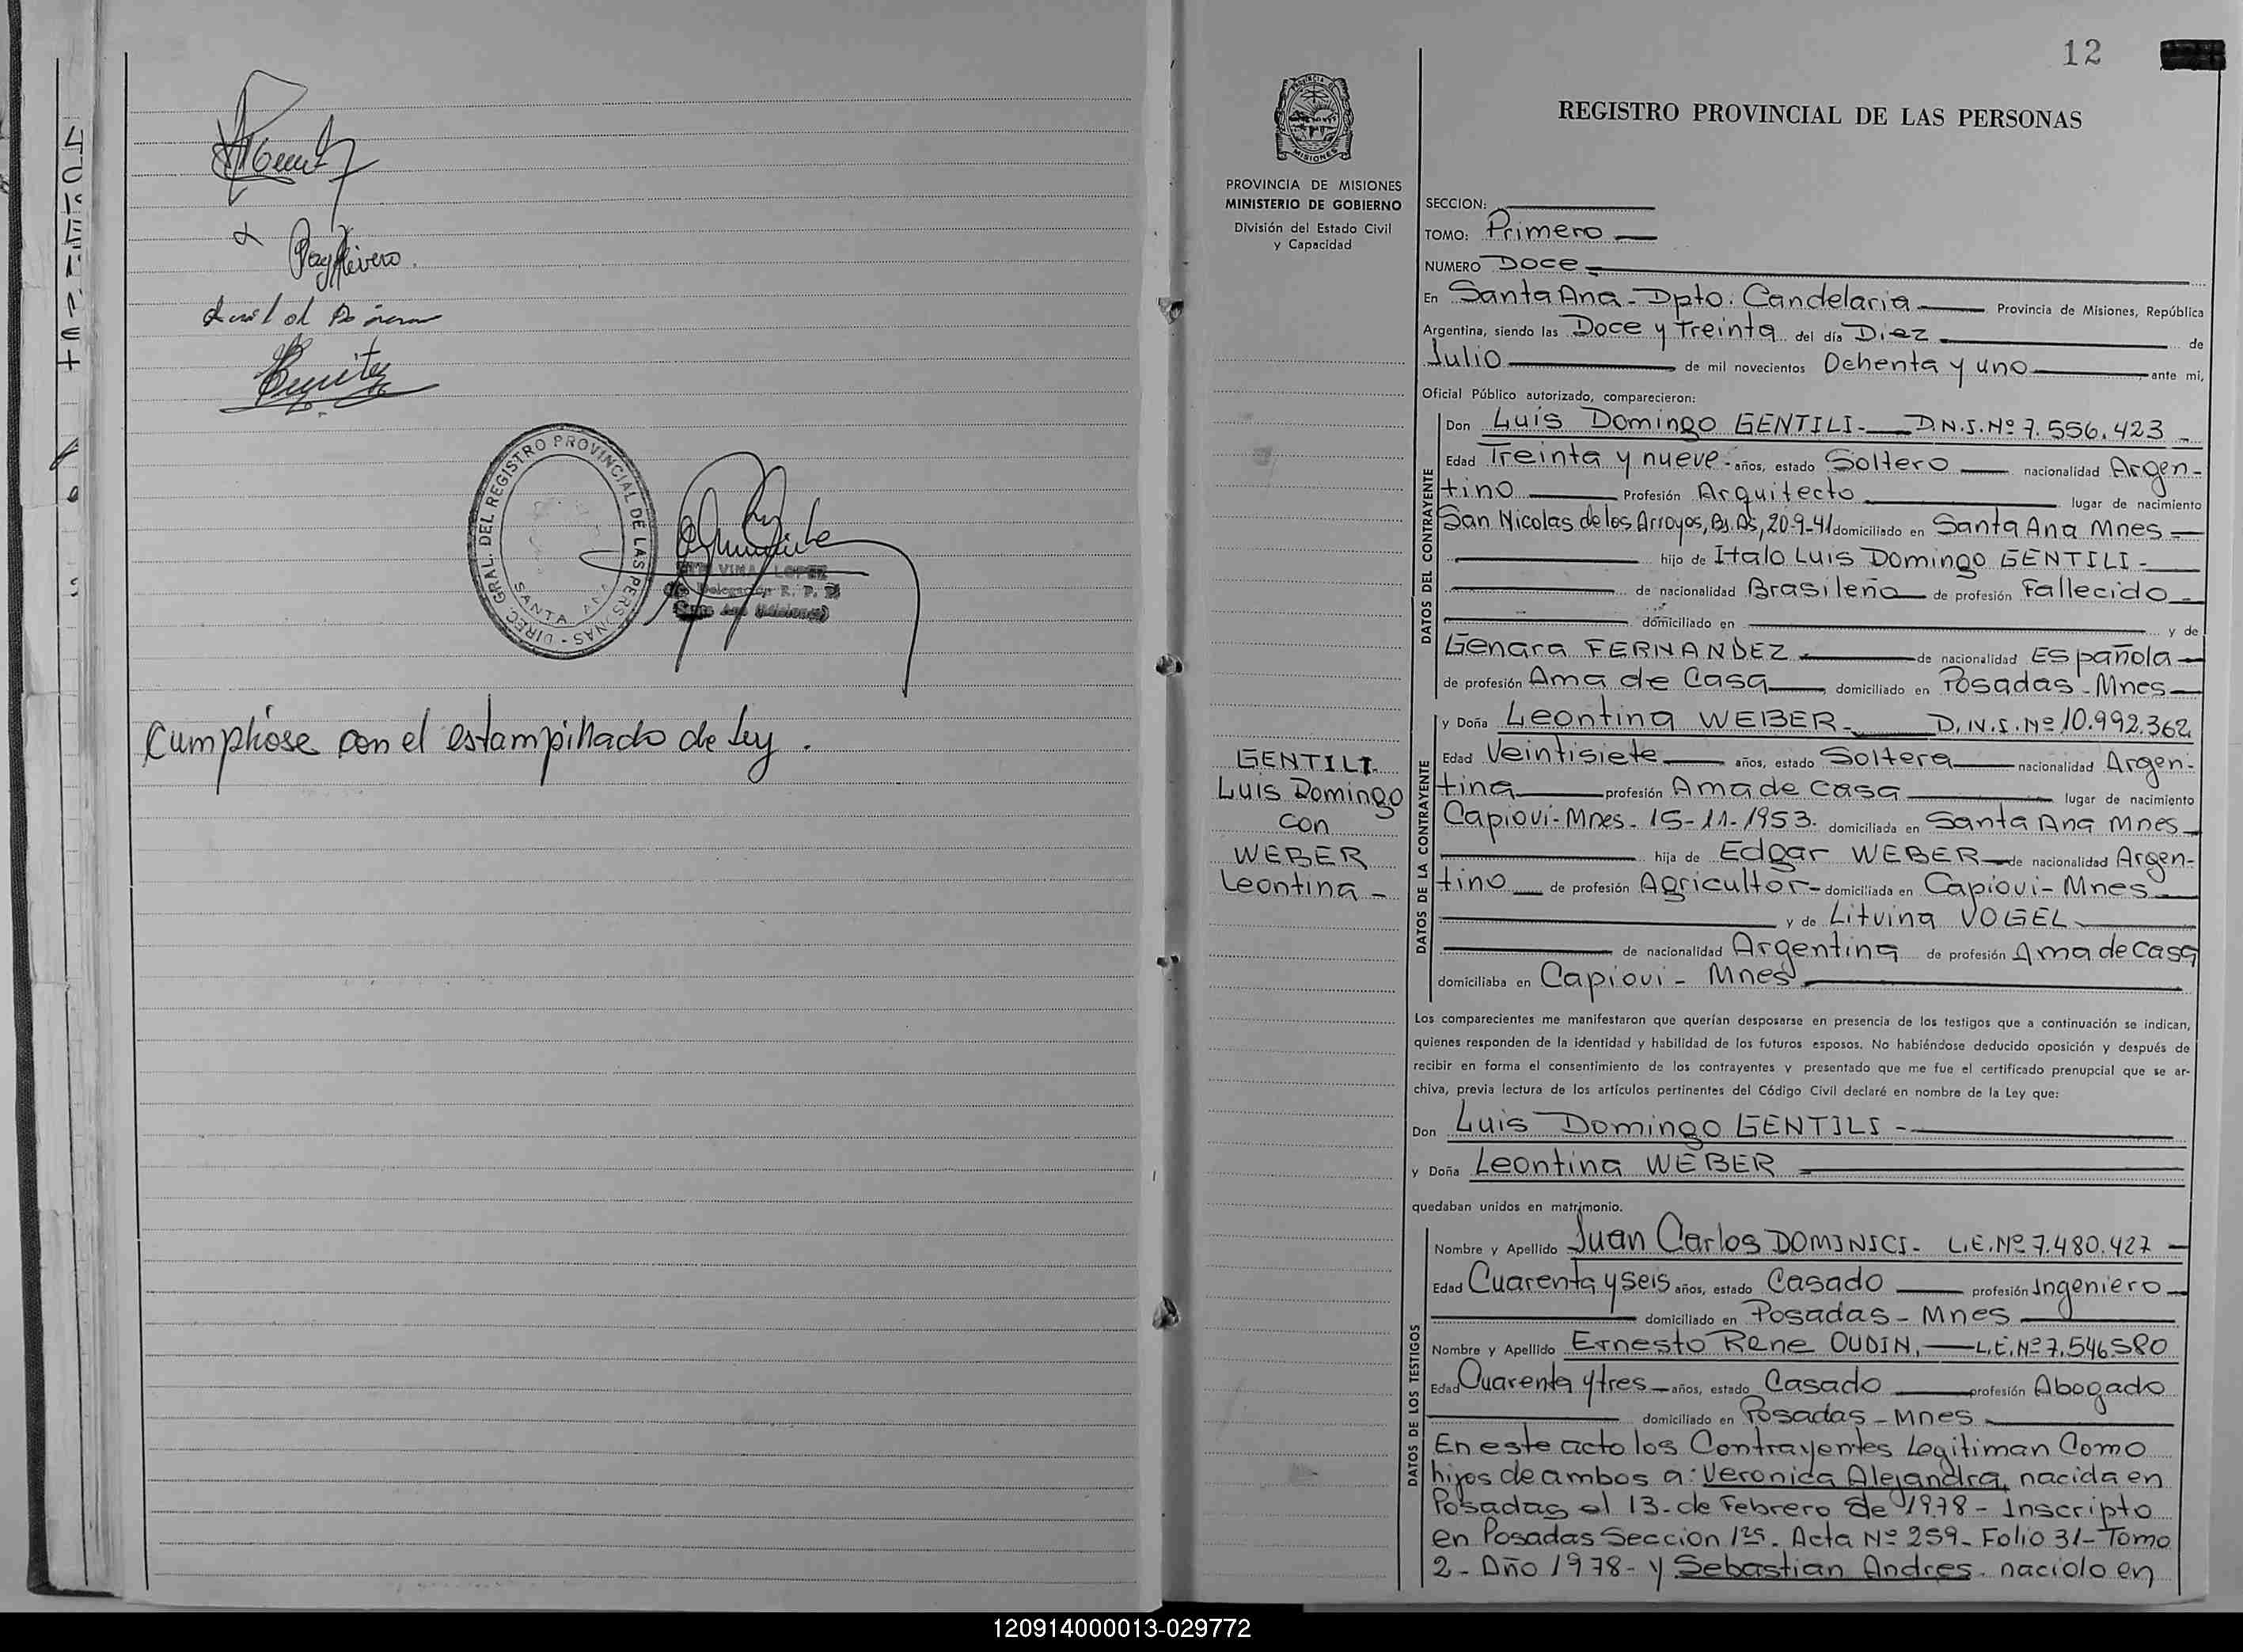 Benitez
DIREC. GRAL. DEL REGISTRO PROVINCIAL DE LAS PERSONAS
SANTA ANA
LOPEZ
Delegación R. P. P.
Santa Ana (Misiones)
Cumplióse con el estampillado de ley.
12
PROVINCIA DE
MISIONES
PROVINCIA DE MISIONES
MINISTERIO DE GOBIERNO
División del Estado Civil
y Capacidad
GENTILI
Luis Domingo
con
WEBER
Leontina -
REGISTRO PROVINCIAL DE LAS PERSONAS
SECCION:
TOMO: Primero
NUMERO Doce
En Santa Ana - Dpto. Candelaria Provincia de Misiones, República
Argentina, siendo las Doce y Treinta del día Diez de
Julio de mil novecientos Ochenta y uno ante mi,
Oficial Público autorizado, comparecieron:
DATOS DEL CONTRAYENTE
Don Luis Domingo GENTILI- D.N.I. Nº 7.556.423 -
Edad Treinta y nueve- años, estado Soltero nacionalidad Argen-
tino Profesión Arquitecto lugar de nacimiento
San Nicolas de los Arroyos, Bs. As, 20-9-41 domiciliado en Santa Ana Mnes
hijo de Italo Luis Domingo GENTILI -
de nacionalidad Brasileña de profesión Fallecido
domiciliado en y de
Genara FERNANDEZ de nacionalidad Española
de profesión Ama de Casa, domiciliado en Posadas - Mnes
DATOS DE LA CONTRAYENTE
y Doña Leontina WEBER- D.N.I. Nº 10.992.362
Edad Veintisiete años, estado Soltera nacionalidad Argen-
tina profesión Ama de casa lugar de nacimiento
Capiovi- Mnes- 15-11-1953. domiciliada en Santa Ana Mnes
hija de Edgar WEBER de nacionalidad Argen-
tino de profesión Agricultor- domiciliada en Capiovi- Mnes
y de Litvina VOGEL
de nacionalidad Argentina de profesión Ama de casa
domiciliaba en Capiovi - Mnes
Los comparecientes me manifestaron que querían desposarse en presencia de los testigos que a continuación se indican,
quienes responden de la identidad y habilidad de los futuros esposos. No habiéndose deducido oposición y después de
recibir en forma el consentimiento de los contrayentes y presentado que me fue el certificado prenupcial que se ar-
chiva, previa lectura de los artículos pertinentes del Código Civil declaré en nombre de la Ley que:
Don Luis Domingo GENTILI -
y Doña Leontina WEBER
quedaban unidos en matrimonio.
DATOS DE LOS TESTIGOS
Nombre y Apellido Juan Carlos DOMINICI- L.E. Nº 7.480.427
Edad Cuarenta y seis años, estado Casado profesión Ingeniero
domiciliado en Posadas - Mnes
Nombre y Apellido Ernesto Rene OUDIN, L.E. Nº 7.546.580
Edad Cuarenta y tres años, estado Casado profesión Abogado
domiciliado en Posadas - Mnes
En este acto los Contrayentes Legitiman Como
hijos de ambos a: Veronica Alejandra, nacida en
Posadas el 13- de Febrero de 1978 - Inscripto
en Posadas Seccion 1ra. Acta Nº 259- Folio 31- Tomo
2- Año 1978- y Sebastian Andres- nacido en
120914000013-029772